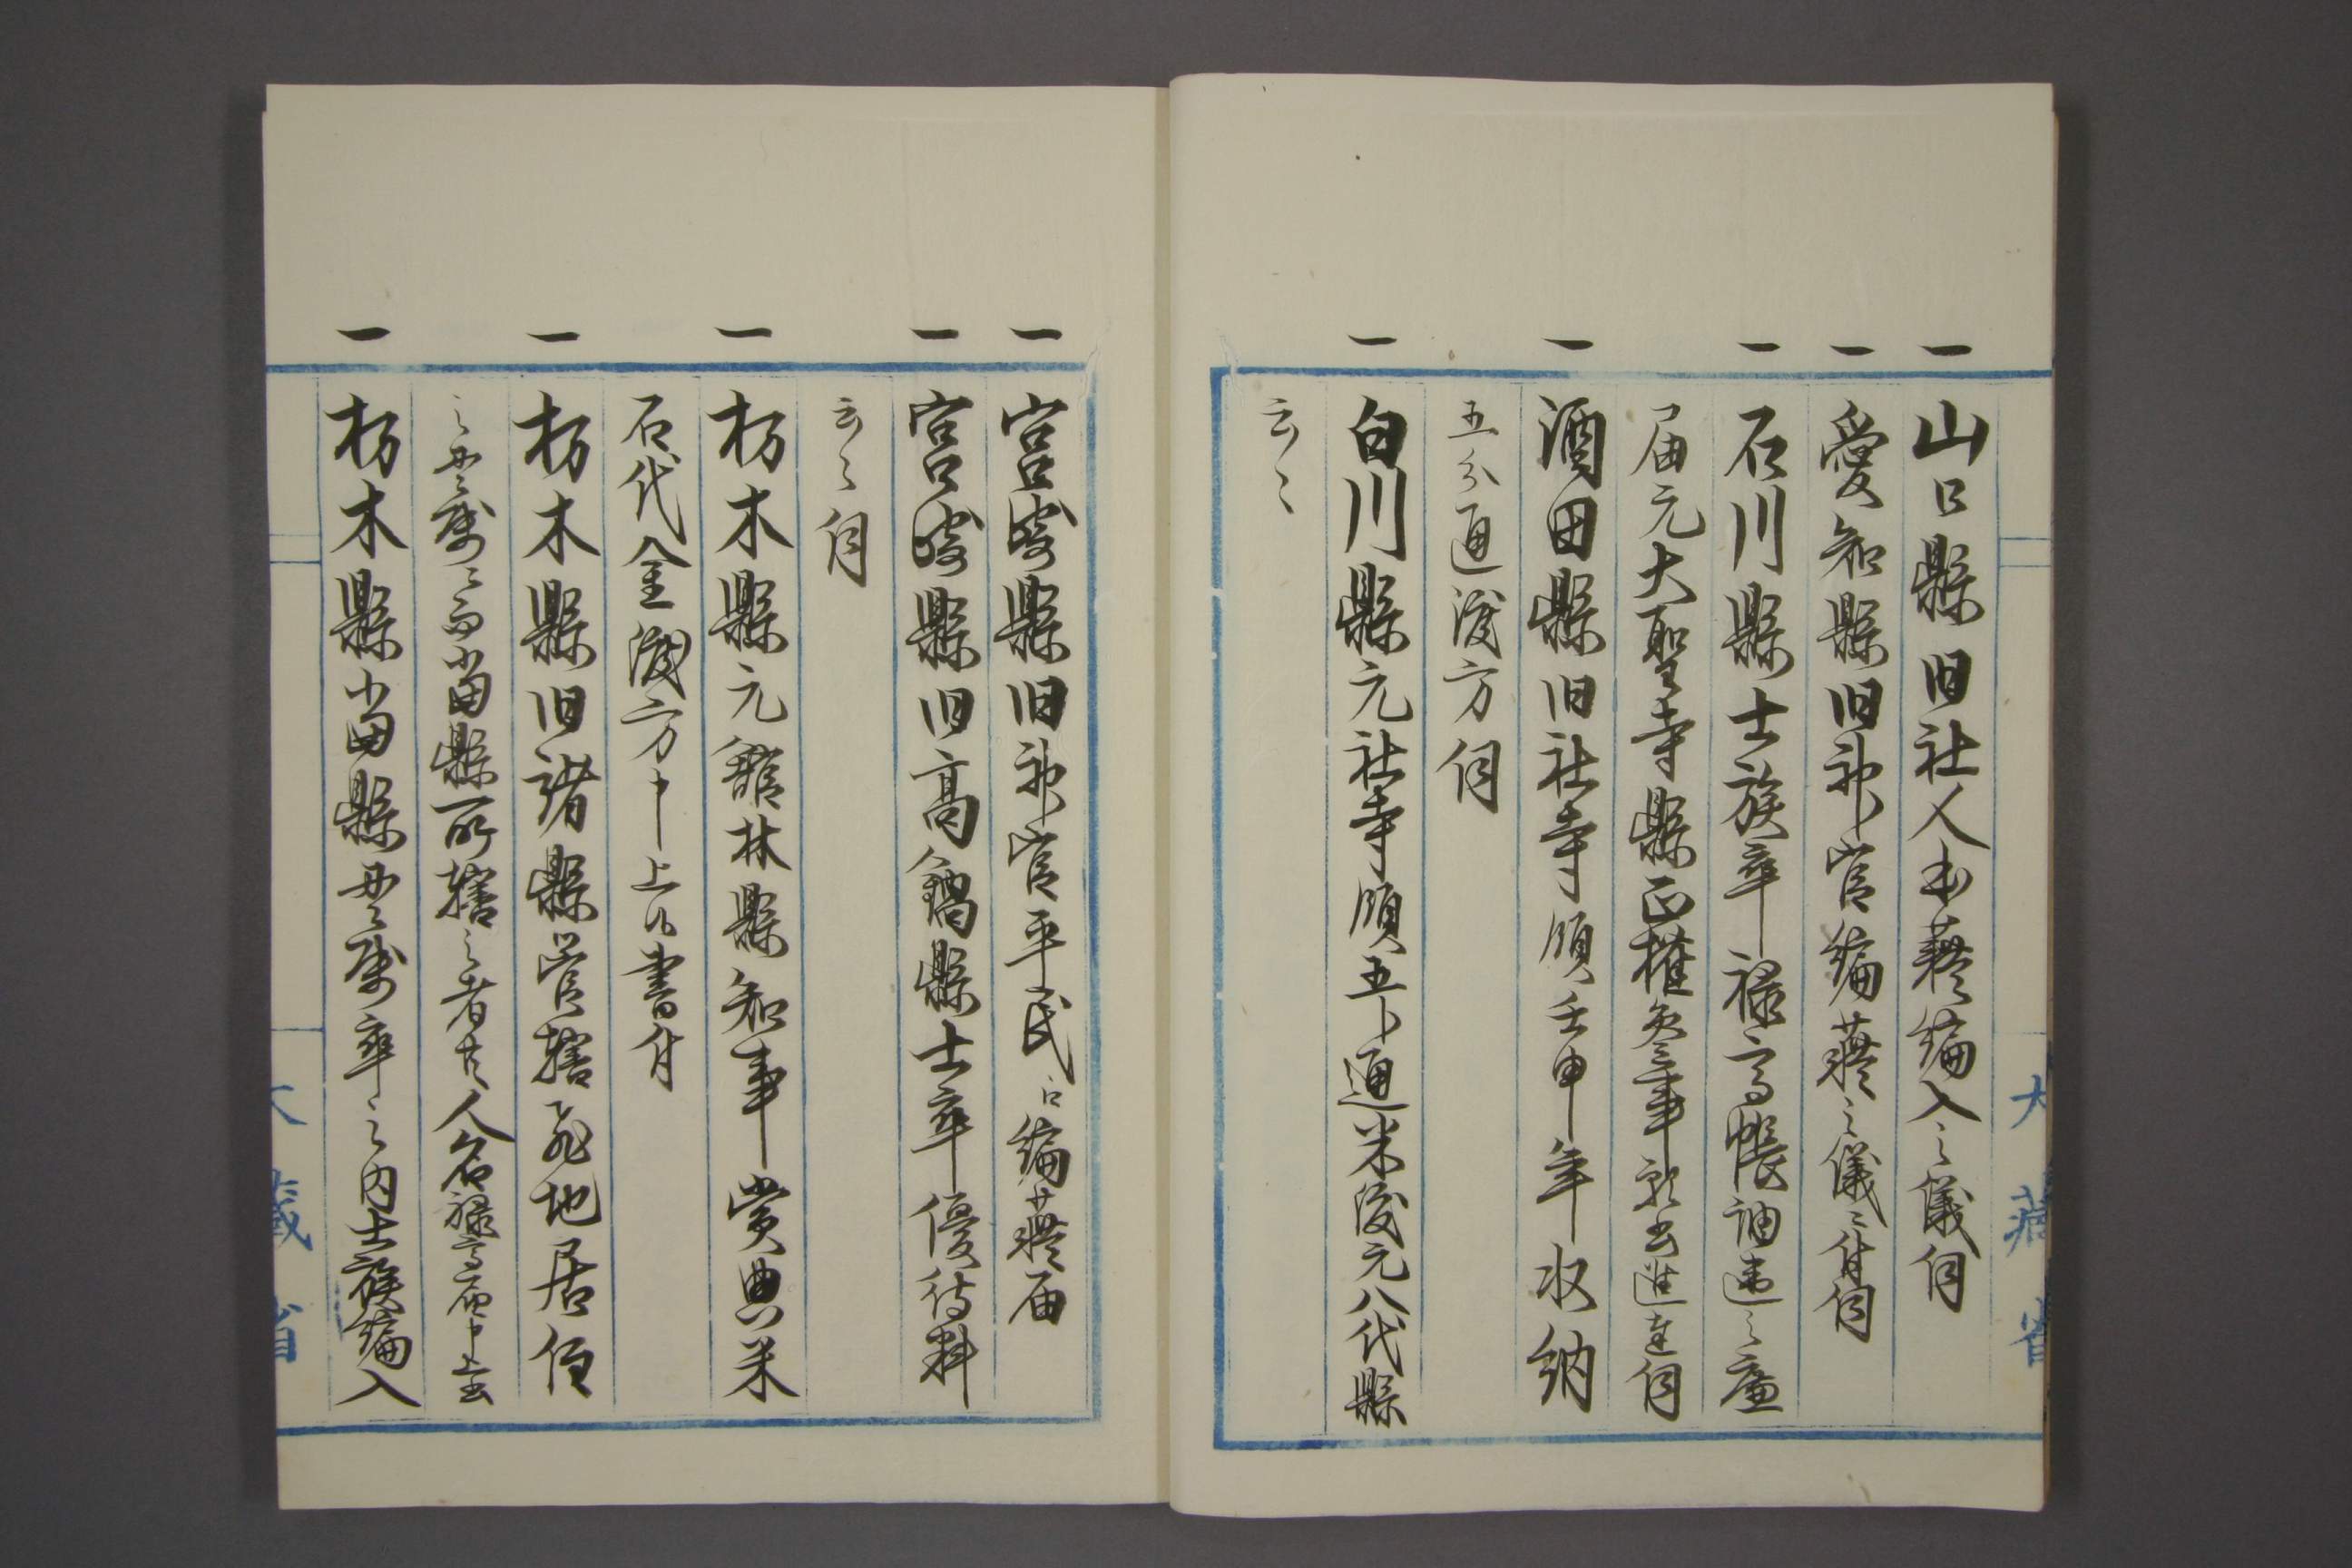 一 山口縣旧社人本籍編入之儀伺
一 愛知縣旧神官編籍之儀ニ付伺
一 石川縣士族卒禄高帳調違之廉
届元大聖寺縣正權参事進退伺
一 酒田縣旧社寺領壬申年収納
五分通渡方伺
一 白川縣元社寺領五分通米渡元八代縣
云々
大藏省
一 宮崎縣旧神官平民ニ編籍届
一 宮崎縣旧高鍋縣士卒優待料
云々伺
一 栃木縣元館林縣知事賞典米
石代金渡方申上候書付
一 栃木縣旧諸縣管轄飛地居住
之世襲ニ而當縣所轄之者共人名禄高届申上書
一 栃木縣當縣世襲卒之内士族編入
大藏省